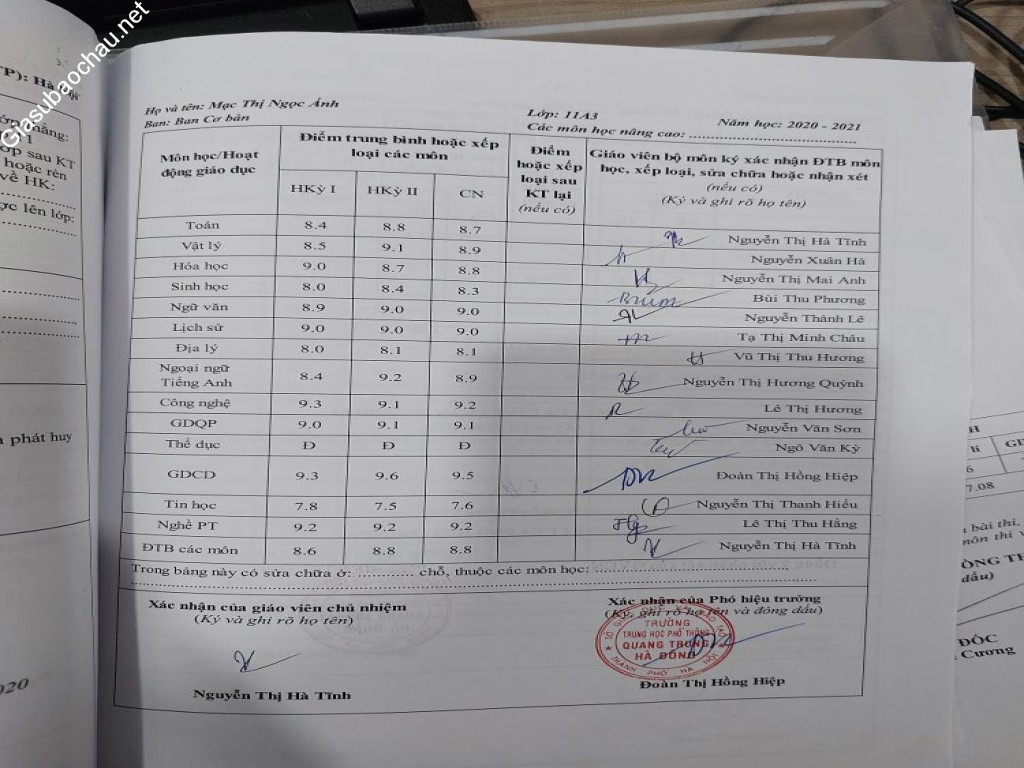 Giasubaochau.net
TP): Hà Nội
sau KT
hoặc rèn
về HK:
ược lên lớp:
phát huy
020
Họ và tên: Mạc Thị Ngọc Ánh Lớp: 11A3 Năm học: 2020 - 2021
Ban: Ban Cơ bản Các môn học nâng cao: ..............................
Môn học/Hoạt động giáo dục Điểm trung bình hoặc xếp loại các môn Điểm hoặc xếp loại sau KT lại (nếu có) Giáo viên bộ môn ký xác nhận ĐTB môn học, xếp loại, sửa chữa hoặc nhận xét (nếu có) (Ký và ghi rõ họ tên)
HKỳ I HKỳ II CN
Toán 8.4 8.8 8.7 Nguyễn Thị Hà Tĩnh
Vật lý 8.5 9.1 8.9 Nguyễn Xuân Hà
Hóa học 9.0 8.7 8.8 Nguyễn Thị Mai Anh
Sinh học 8.0 8.4 8.3 Bùi Thu Phương
Ngữ văn 8.9 9.0 9.0 Nguyễn Thành Lê
Lịch sử 9.0 9.0 9.0 Tạ Thị Minh Châu
Địa lý 8.0 8.1 8.1 Vũ Thị Thu Hương
Ngoại ngữ
Tiếng Anh 8.4 9.2 8.9 Nguyễn Thị Hương Quỳnh
Công nghệ 9.3 9.1 9.2 Lê Thị Hương
GDQP 9.0 9.1 9.1 Nguyễn Văn Sơn
Thể dục Đ Đ Đ Ngô Văn Kỳ
GDCD 9.3 9.6 9.5 Đoàn Thị Hồng Hiệp
Tin học 7.8 7.5 7.6 Nguyễn Thị Thanh Hiếu
Nghề PT 9.2 9.2 9.2 Lê Thị Thu Hằng
ĐTB các môn 8.6 8.8 8.8 Nguyễn Thị Hà Tĩnh
Trong bảng này có sửa chữa ở: ............ chỗ, thuộc các môn học: ..............................
Xác nhận của giáo viên chủ nhiệm
(Ký và ghi rõ họ tên)
Nguyễn Thị Hà Tĩnh
Xác nhận của Phó hiệu trưởng
(Ký, ghi rõ họ tên và đóng dấu)
TRƯỜNG
TRUNG HỌC PHỔ THÔNG
QUANG TRUNG
HÀ ĐÔNG
THÀNH PHỐ HÀ NỘI
Đoàn Thị Hồng Hiệp
7.08
bài thi,
môn thi
dấu)
ĐỐC
Cương